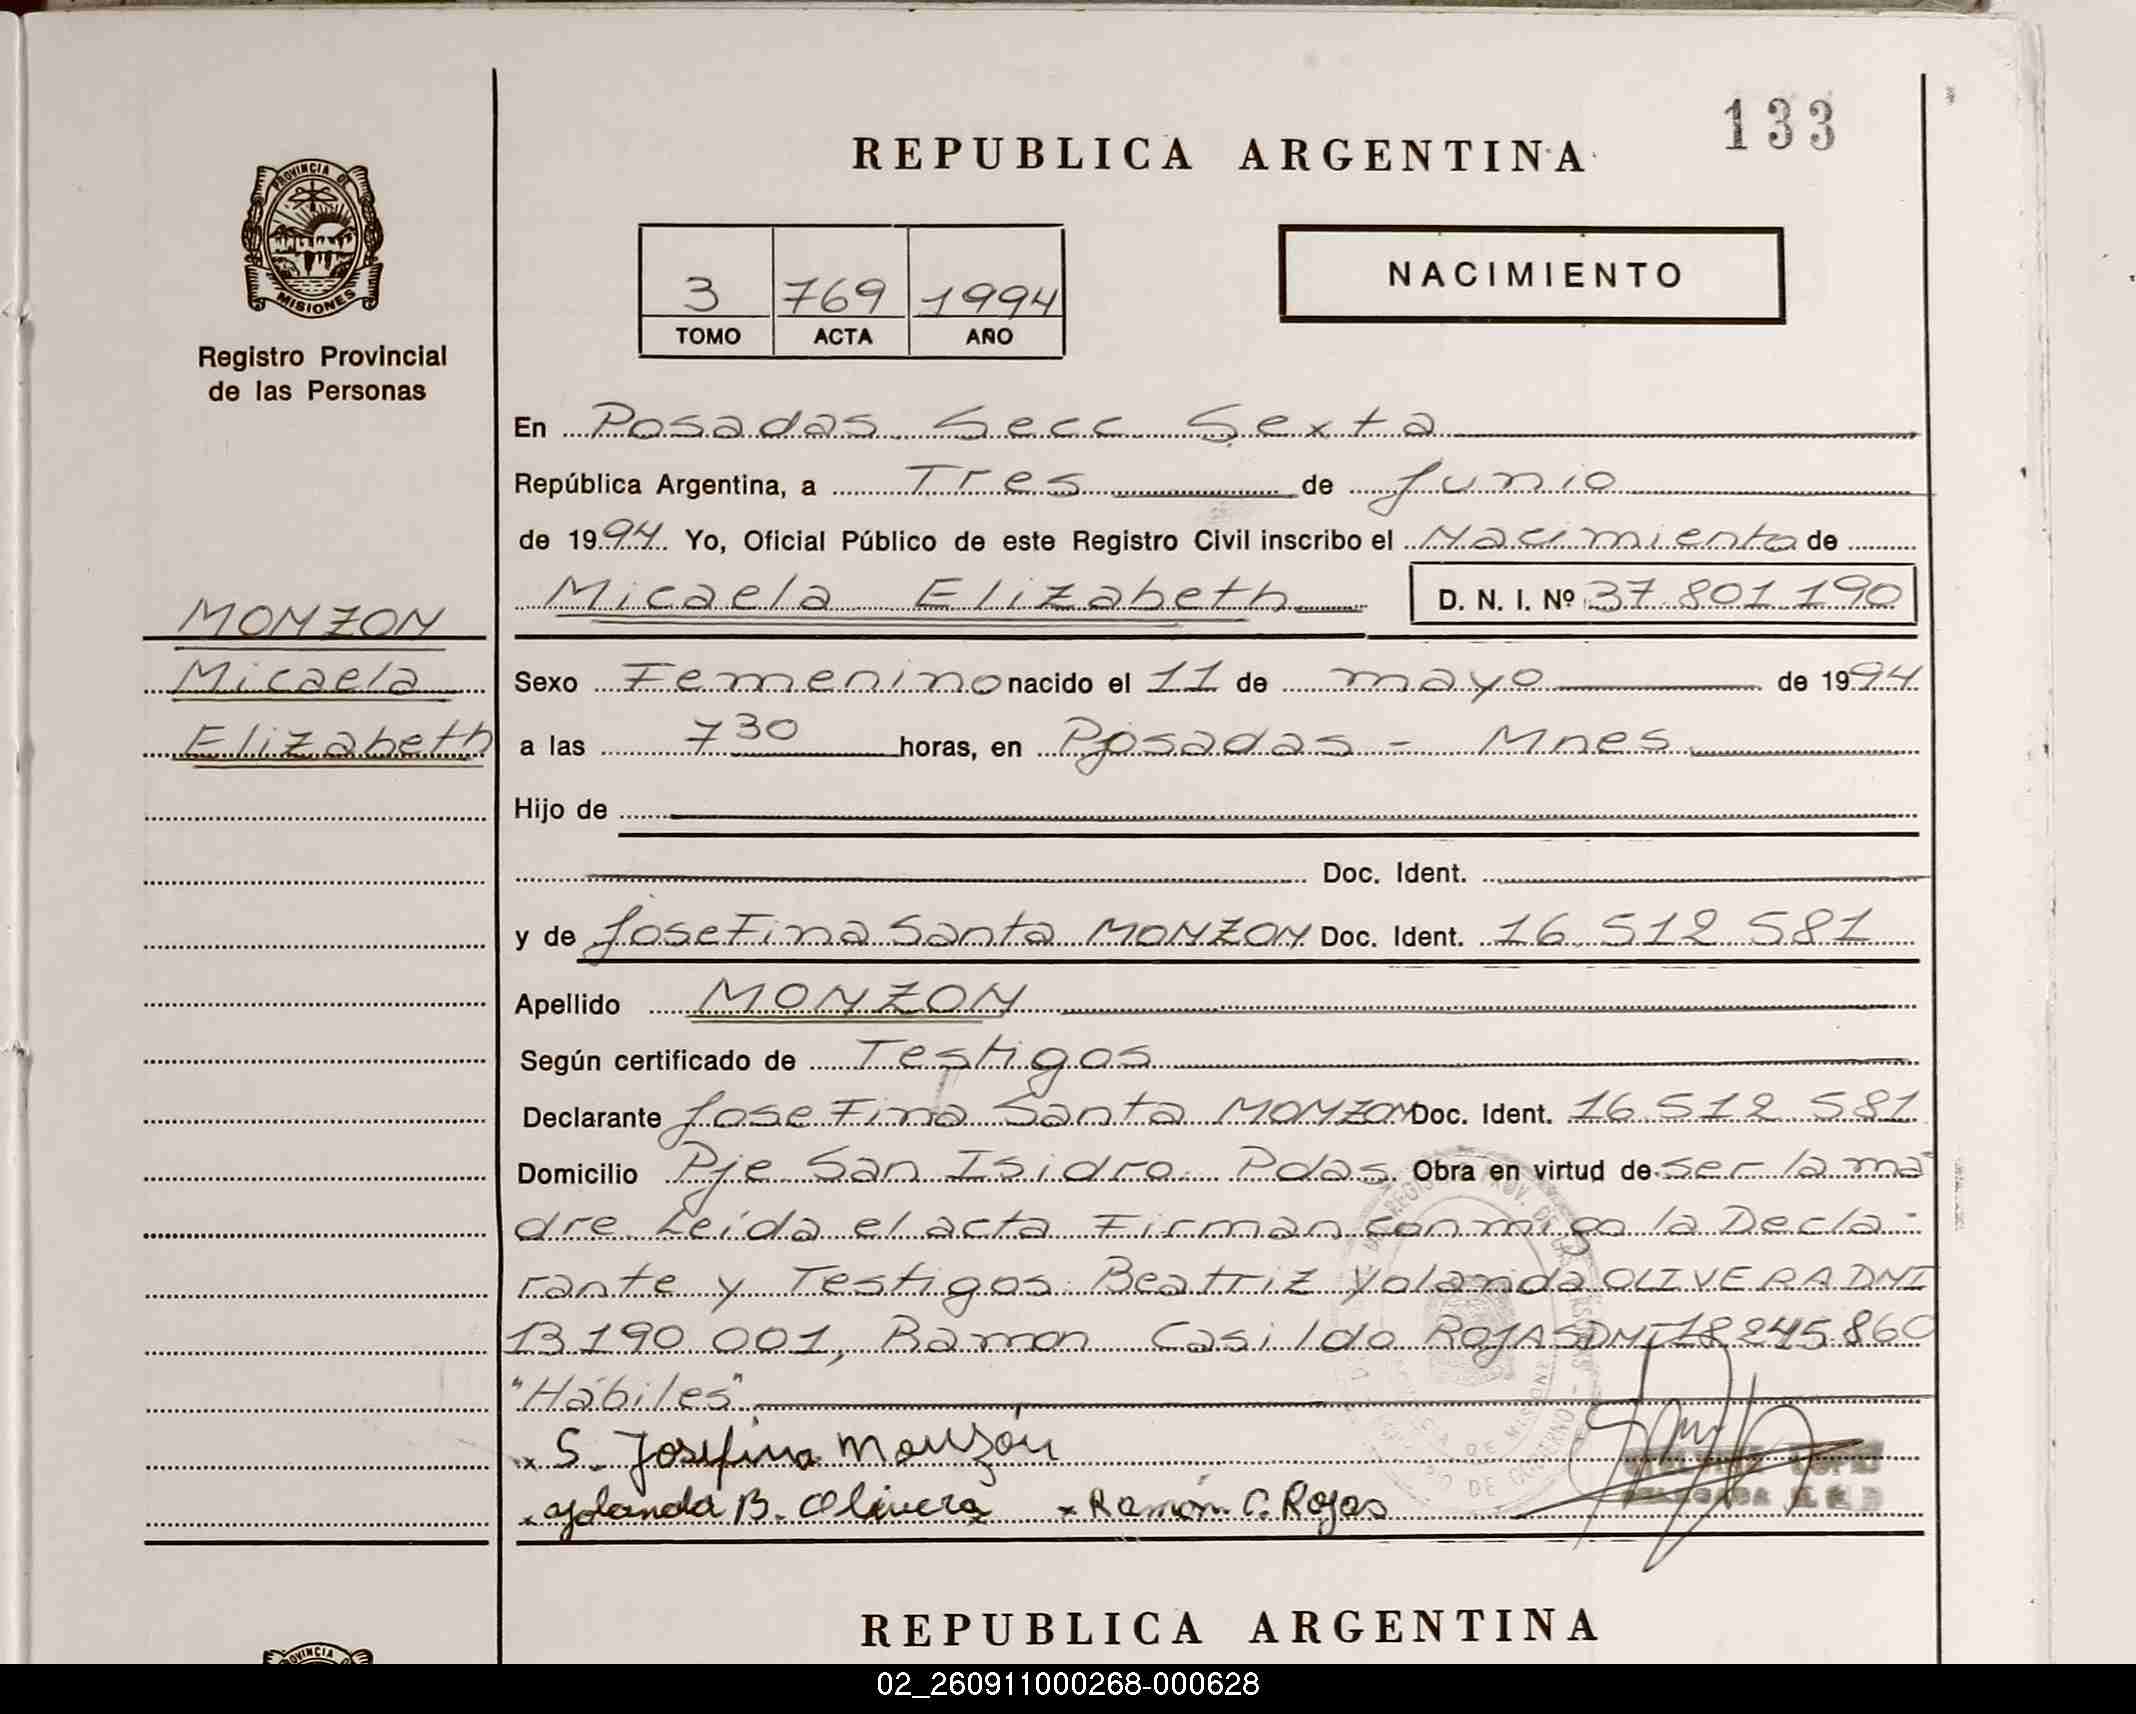 133
REPUBLICA ARGENTINA
PROVINCIA DE
MISIONES
Registro Provincial
de las Personas
3 769 1994
TOMO ACTA AÑO
NACIMIENTO
En Posadas Secc Sexta
República Argentina, a Tres de Junio
de 1994 Yo, Oficial Público de este Registro Civil inscribo el Nacimiento de
Micaela Elizabeth D. N. I. Nº 37.801.190
MONZON
Micaela
Elizabeth
Sexo Femenino nacido el 11 de mayo de 1994
a las 7 30 horas, en Posadas - Mnes
Hijo de
Doc. Ident.
y de Josefina Santa MONZON Doc. Ident. 16.512.581
Apellido MONZON
Según certificado de Testigos
Declarante Josefina Santa MONZON Doc. Ident. 16.512.581
Domicilio Pje San Isidro Pdas. Obra en virtud de ser la ma
dre. Leída el acta Firman conmigo la Decla-
rante y Testigos: Beatriz Yolanda OLIVERA DNI
13.190.001, Ramon Casildo ROJAS DNI 18.245.860
"Hábiles"
x S. Josefina Monzón
x Yolanda B. Olivera x Ramón C. Rojas
REPUBLICA ARGENTINA
02_260911000268-000628